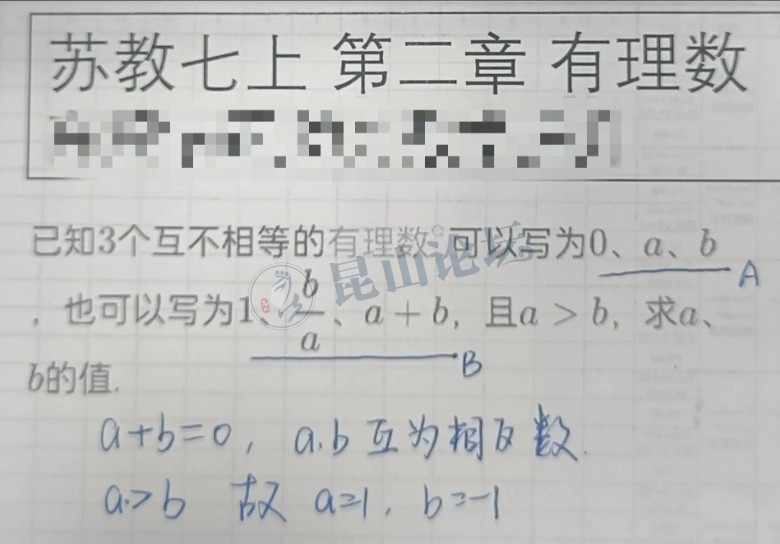 苏教七上 第二章 有理数
已知3个互不相等的有理数。可以写为0、a、b
A
，也可以写为1、b/a、a + b，且a > b，求a、
B
b的值.
a+b=0，a.b 互为相反数.
a>b 故 a=1，b=-1
昆山论坛